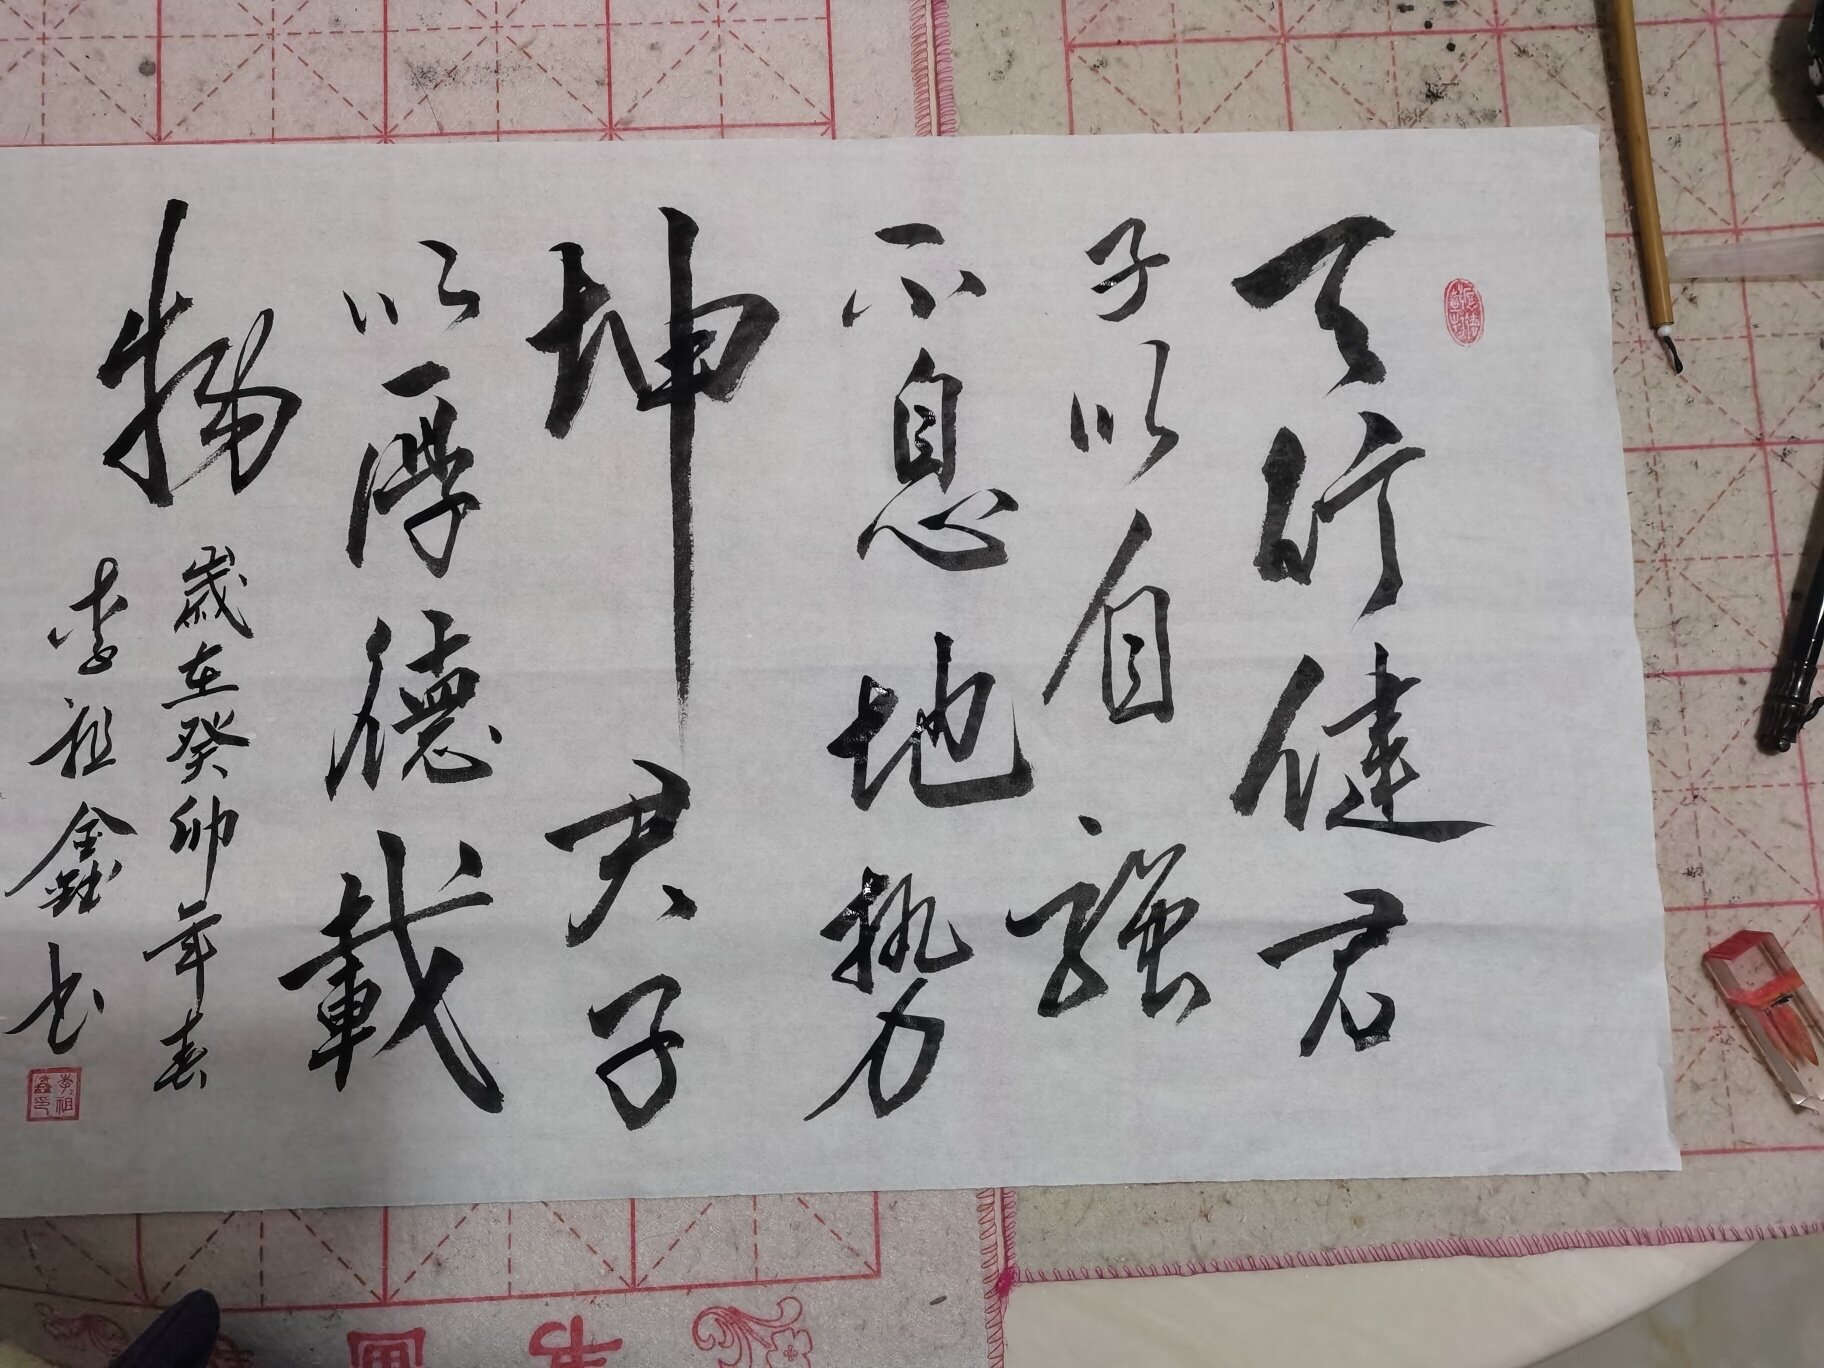 天行健君
子以自强
不息地势
坤君子
以厚德載
物
歲在癸卯年春
李祖鑫书
李祖鑫印